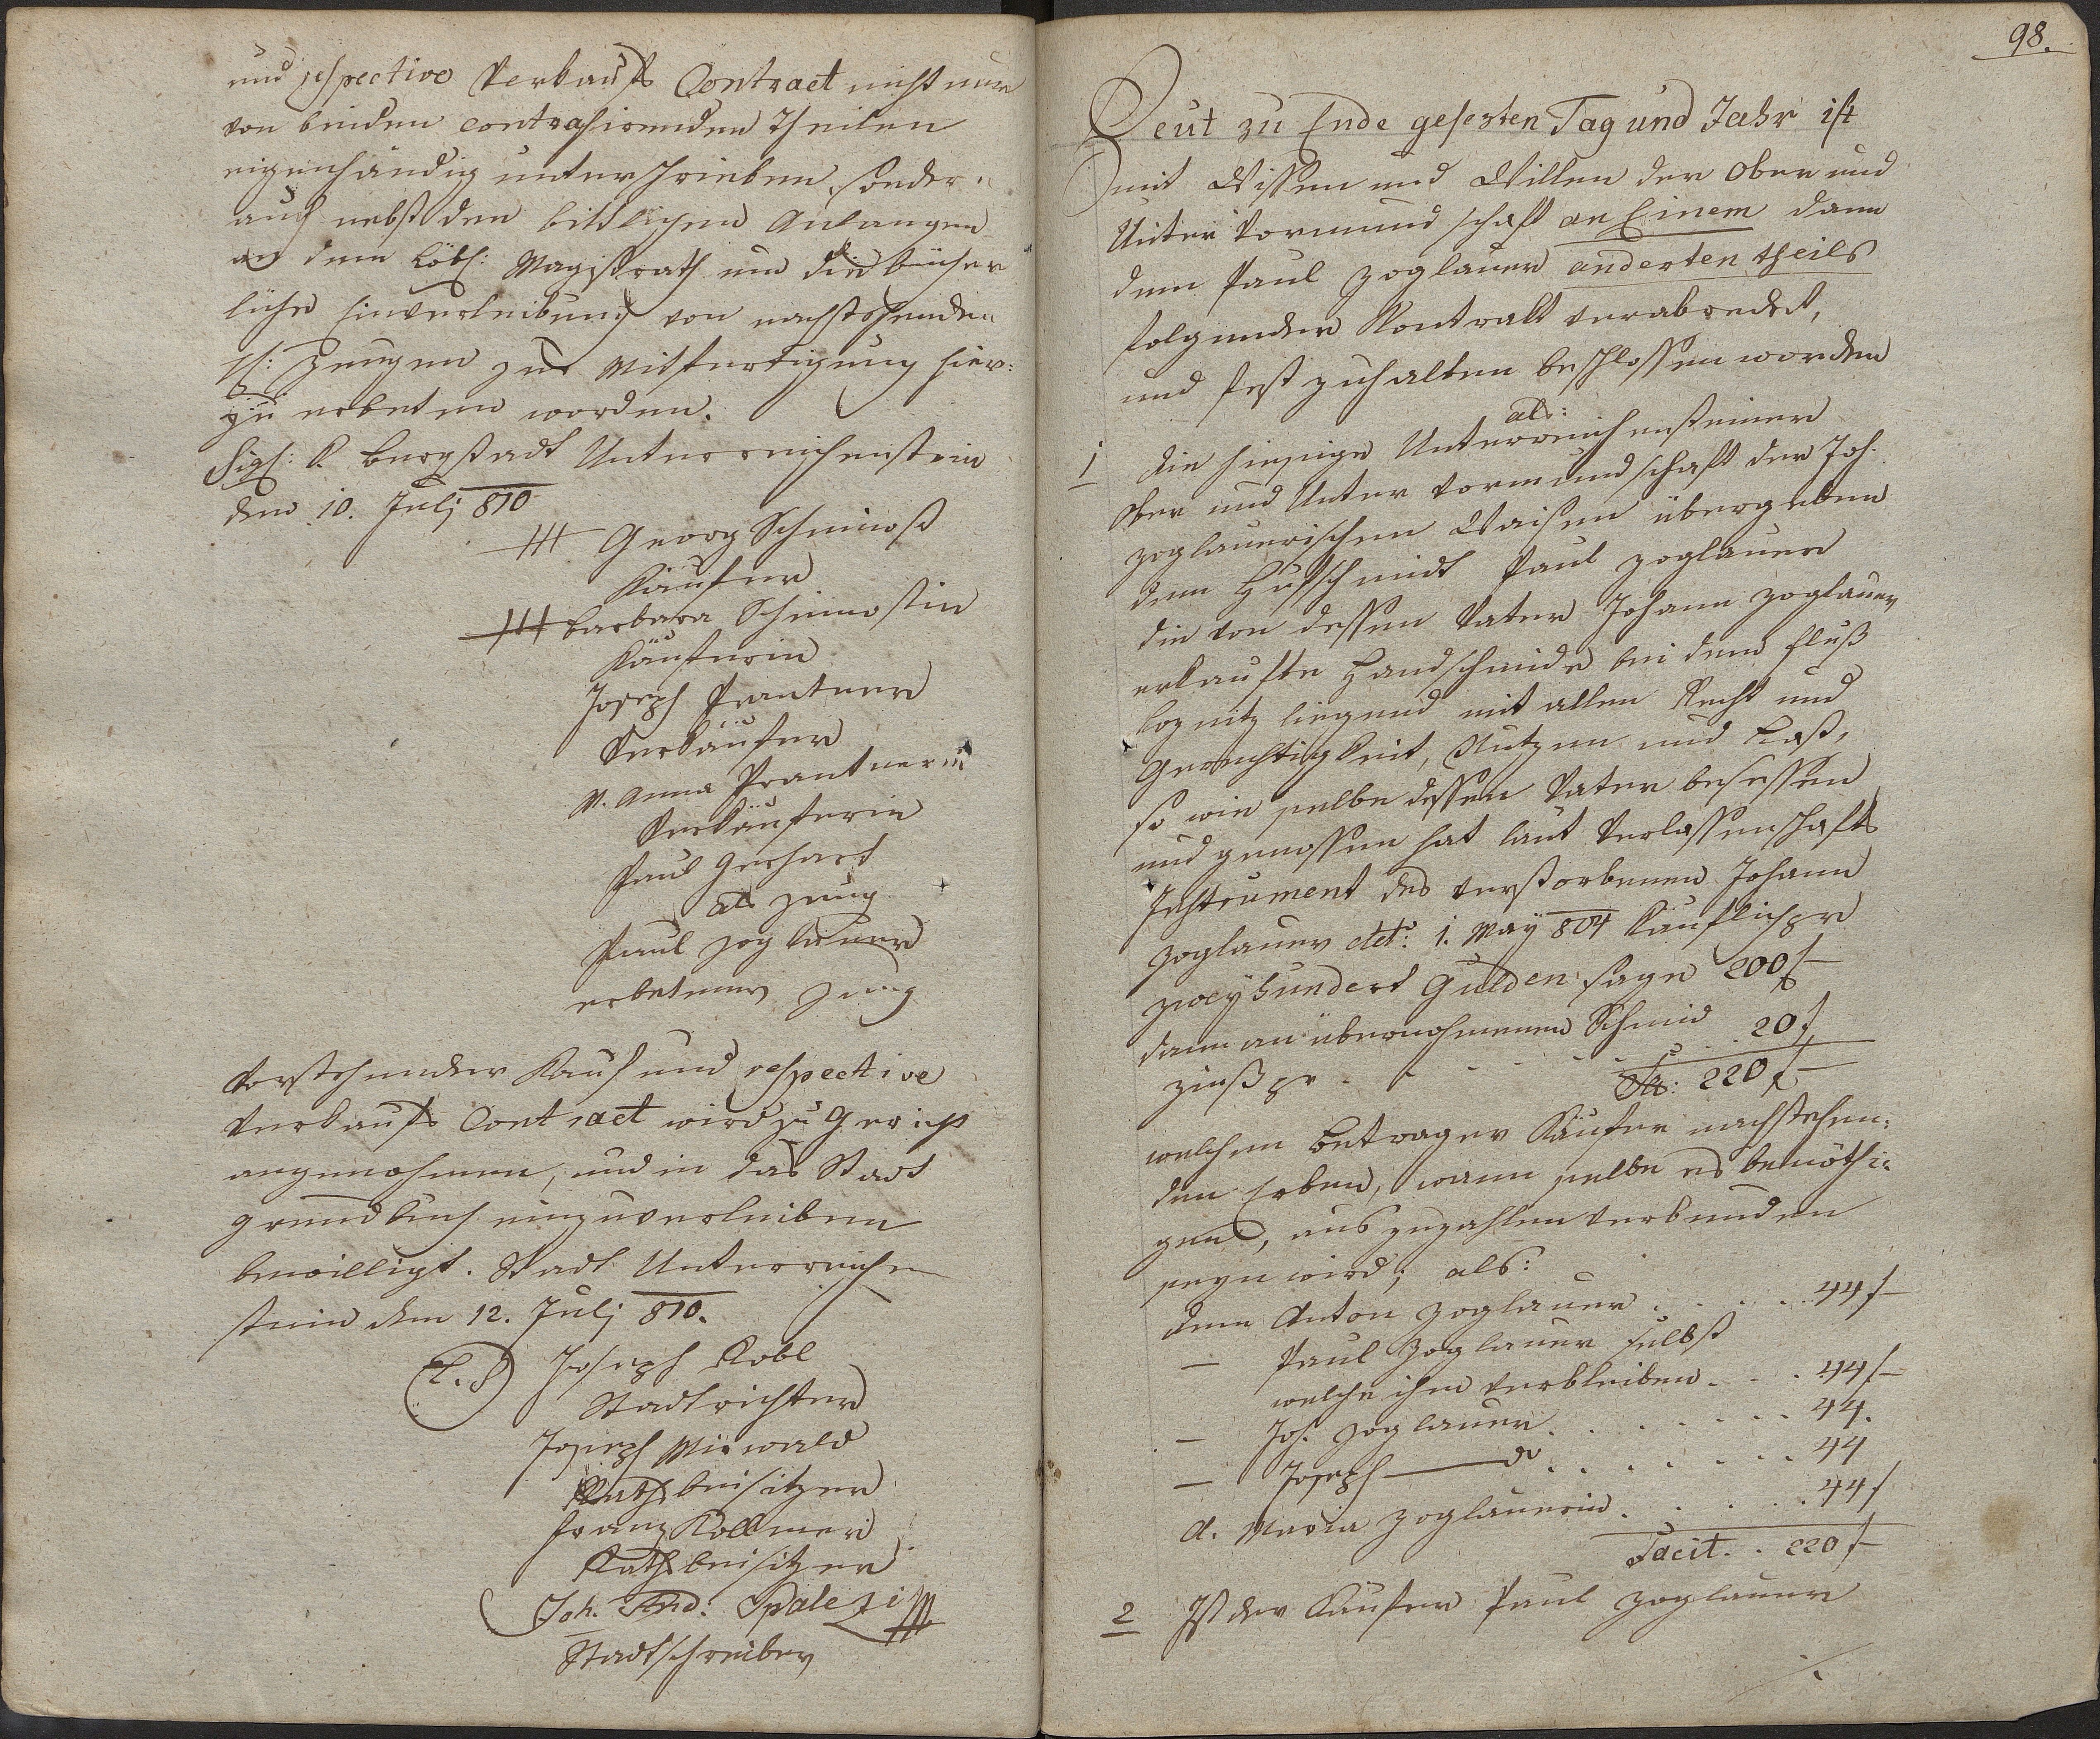 und respective Verkaufs Contract nicht nur
von beiden contrahirenden Theilen
eigenhändig unterschrieben, sondern
auch nebst den bittlichen Anlangen
an dem Löbl: Magistrath um die bücher
liche Einverleibung von nachstehenden
H: Zeugen zur Mitfertigung hier:
zu erbeten worden.
Sigl: K. Bergstadt Unterreichenstein
den 10. Julj 810
+++ Georg Schimoß
Käufer
+++ Barbara Schimostin
Käuferin
Joseph Prantner
Verkäufer
M. Anna Prantnerin
Verkäuferin
Paul Gerhart
als Zeug
Paul Zoglauer
erbetener Zeug
Vorstehender Kauf und respective
Verkaufs Contract wird zu Gericht
angenohmen, und in das Stadt
grundbuch einzuverleiben
bewilligt. Stadt Unterreichen
stein den 12. Julj 810.
(L. S) Joseph Kobl
Stadtrichter
Joseph Miewald
Rathsbeisitzer
Franz Kollmer
Rathsbeisitzer
Joh. And. Spalezi
Stadtschreiber
98.
Heut zu Ende gesezten Tag und Jahr ist
mit Wissen und Willen der Ober und
Unter Vormundschaft an Einem dann
dem Paul Zoglauer anderten theils
folgender Kontrakt verabredet,
und fest zuhalten beschlossen worden
als:
1 Die hiesige Unterreichensteiner
Ober und Unter Vormundschaft der Joh.
Zoglauerischen Waisen übergeben
dem Hufschmidt Paul Zoglauer
die von dessen Vater Johann Zoglauer
erkaufte Handschmide bei dem Fluß
Loznitz liegend mit allen Recht und
Gerechtigkeit, Nutzen und Last,
so wie selbe dessen Vater besessen
und genossen hat laut Verlassenschafts
Instrument des verstorbenen Johann
Zoglauer dto: 1. May 804 Käuflich pr
zweyhundert Gulden sage 200 f
dann an übernohmenen Schmid
zinß pr . . . . . . 20 f
Sa: 220 f
welchen Betrag er Käufer nachstehen:
den Erben, wann selbe es benöthi:
gen, auszuzahlen verbunden
seyn wird; als:
dem Anton Zoglauer . . . . 44 f
— Paul Zoglauer selbst
welche ihm verbleiben . . . 44 f
— Joh. Zoglauer . . . . . . 44.
— Joseph — do . . . . . . . 44
d. Maria Zoglauerin . . . . . 44 f
Facit . . 220 f
2 Ist der Käufer Paul Zoglauer
./.